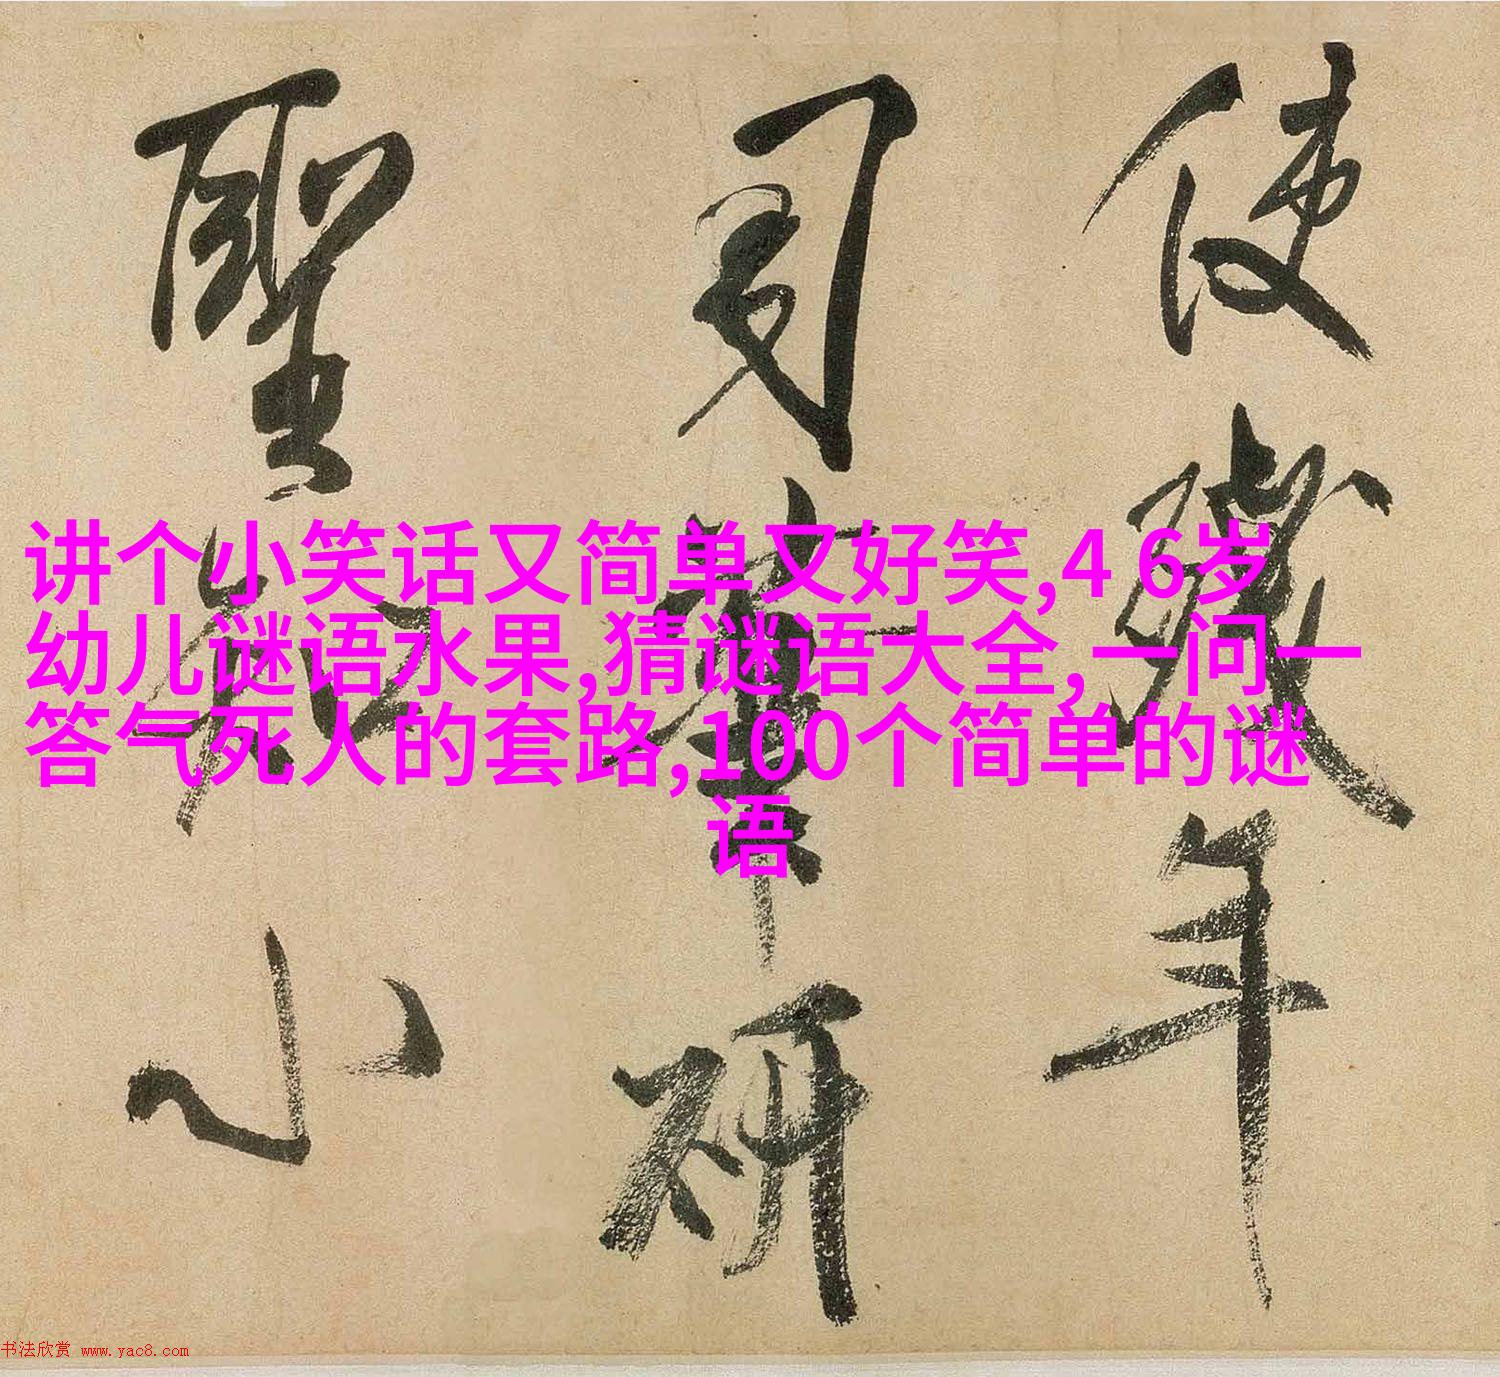 使年
研
聖知小
讲个小笑话又简单又好笑,4 6岁
幼儿谜语水果,猜谜语大全,一问一
答气死人的套路,100个简单的谜
语
书法欣赏 www.yac8.com